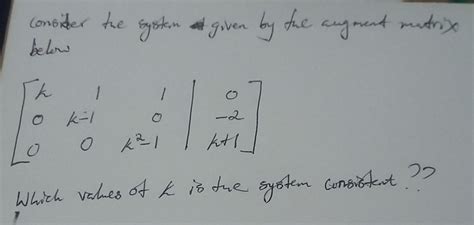 consider the system given by the augment matrix
below
[ k 1 1 | 0 ]
[ 0 k-1 0 | -2 ]
[ 0 0 k²-1 | k+1 ]
Which values of k is the system consistent??